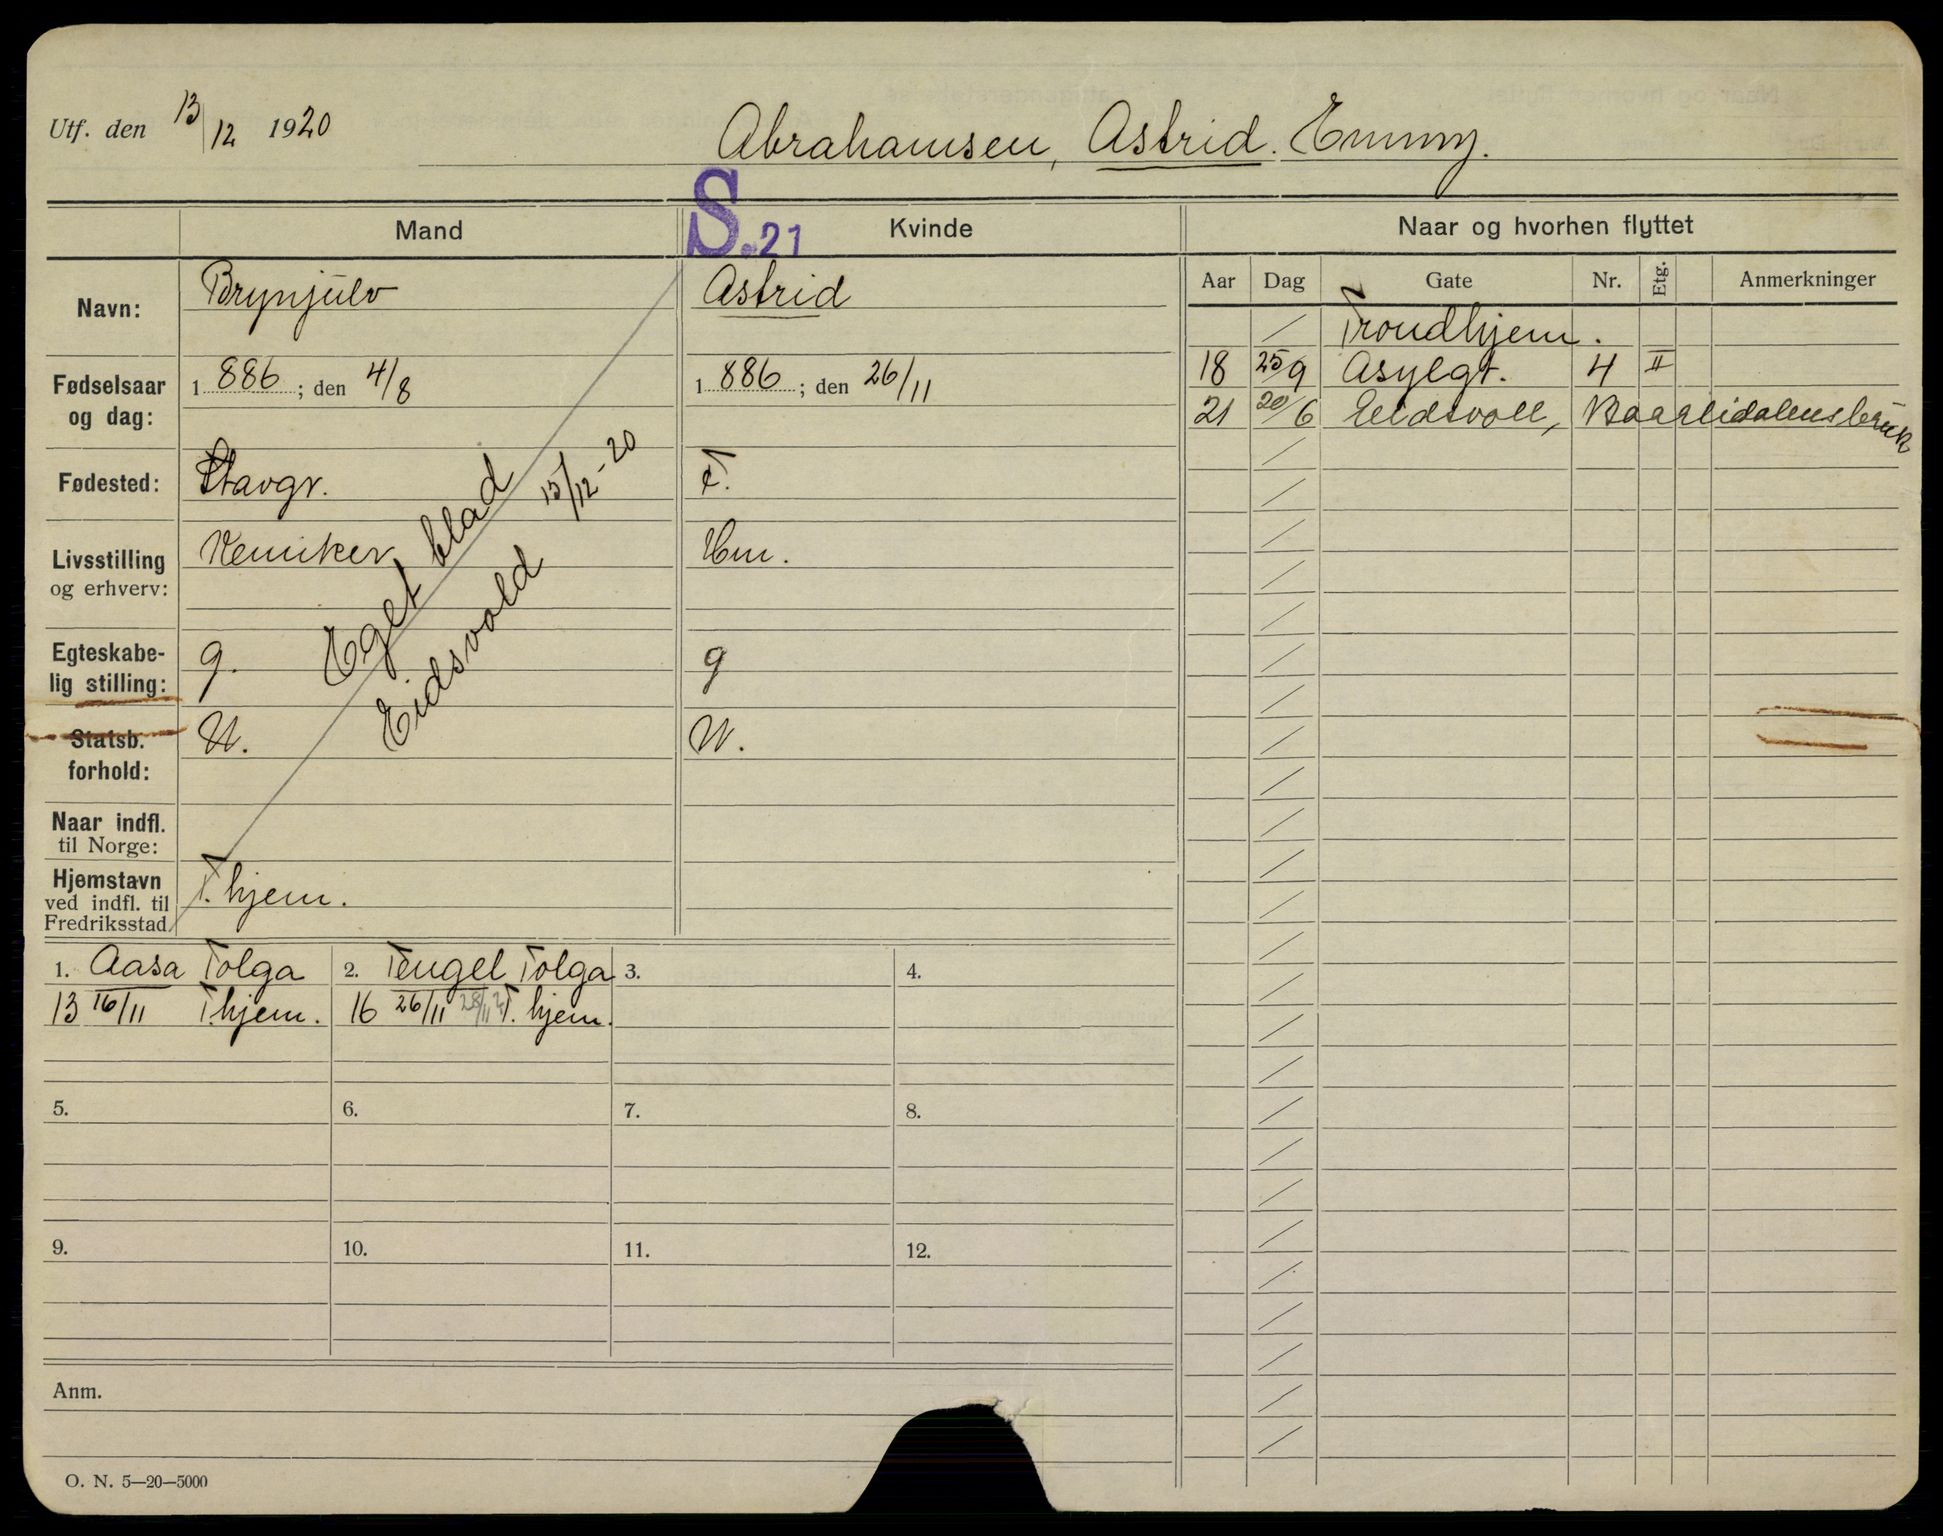 Utf. den 13/12 1920
Abrahamsen, Astrid. Emmy.
S.21
Mand
Kvinde
Naar og hvorhen flyttet
Aar Dag Gate Nr. Etg. Anmerkninger
Navn: Brynjulv Astrid
Fødselsaar og dag: 1 886 ; den 4/8 1 886 ; den 26/11
Fødested: Stavgr. T.
Livsstilling og erhverv: Kemiker Hm.
Egteskabe-
lig stilling: g. g
Statsb.
forhold: N. N.
Naar indfl.
til Norge:
Hjemstavn
ved indfl. til
Fredriksstad T.hjem.
Eget blad 15/12-20
Eidsvold
Trondhjem.
18 25/9 Asylgt. 4 II
21 20/6 Eidsvoll,
1. Aasa Tolga
13 16/11 T.hjem.
2. Tengel Tolga
16 26/11 28/11 T. hjem.
3.
4.
5.
6.
7.
8.
9.
10.
11.
12.
Anm.
O. N. 5—20—5000